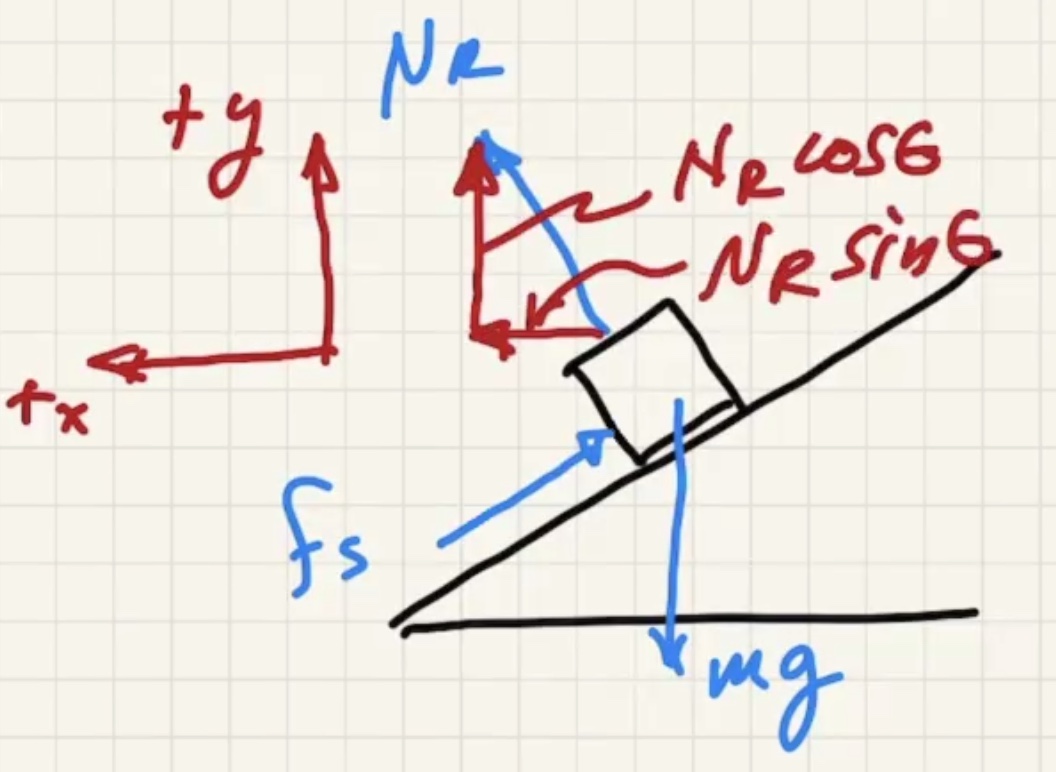 N_R
+y
N_R cosθ
N_R sinθ
+x
f_s
mg